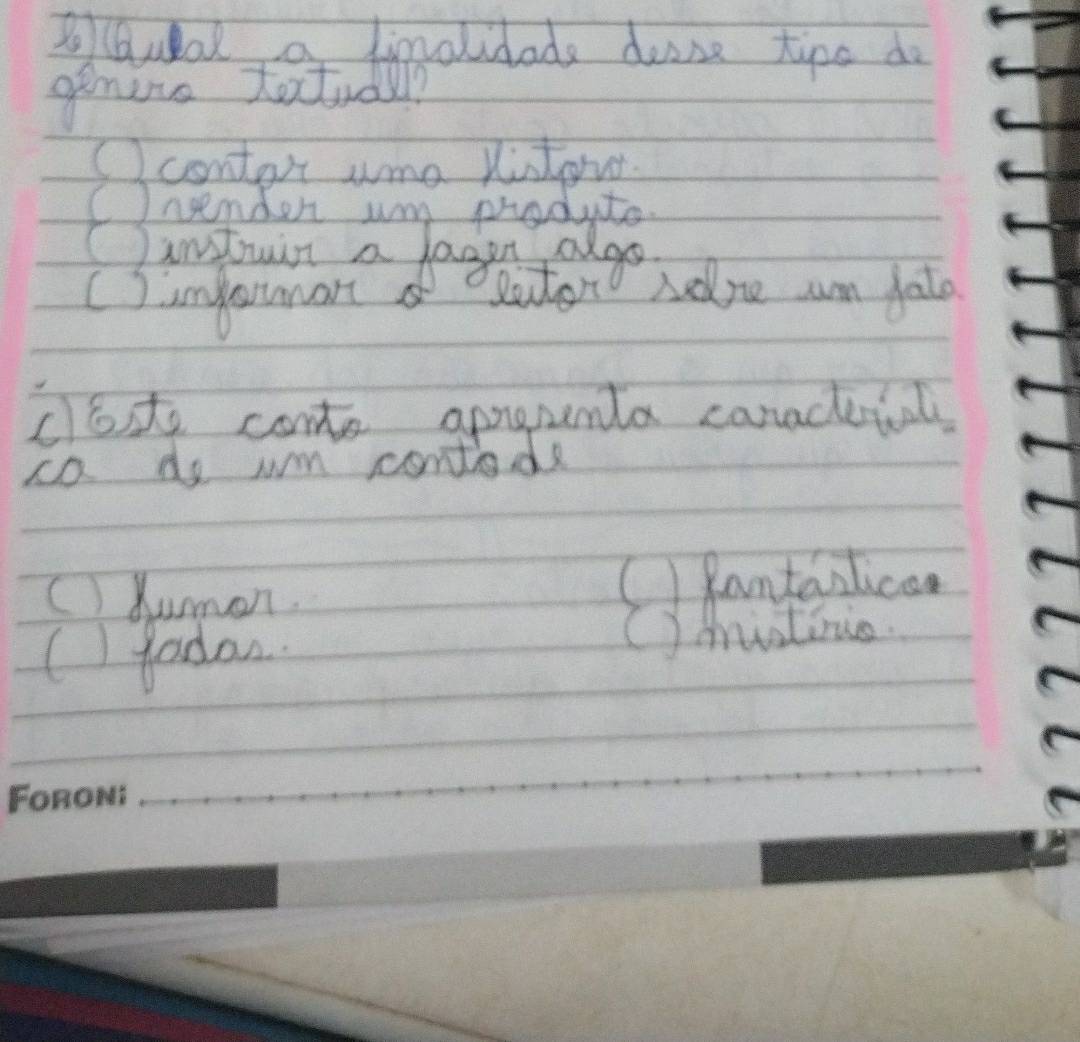 b) Qual a finalidade desse tipo de
gênero textual?
( ) contar uma história.
( ) vender um produto.
( ) instruir a fazer algo.
( ) informar o leitor sobre um fato
c) Este conto apresenta característi-
ca de um conto de
( ) humor.
( ) fantástico.
( ) fadas.
( ) mistério.
FORONI